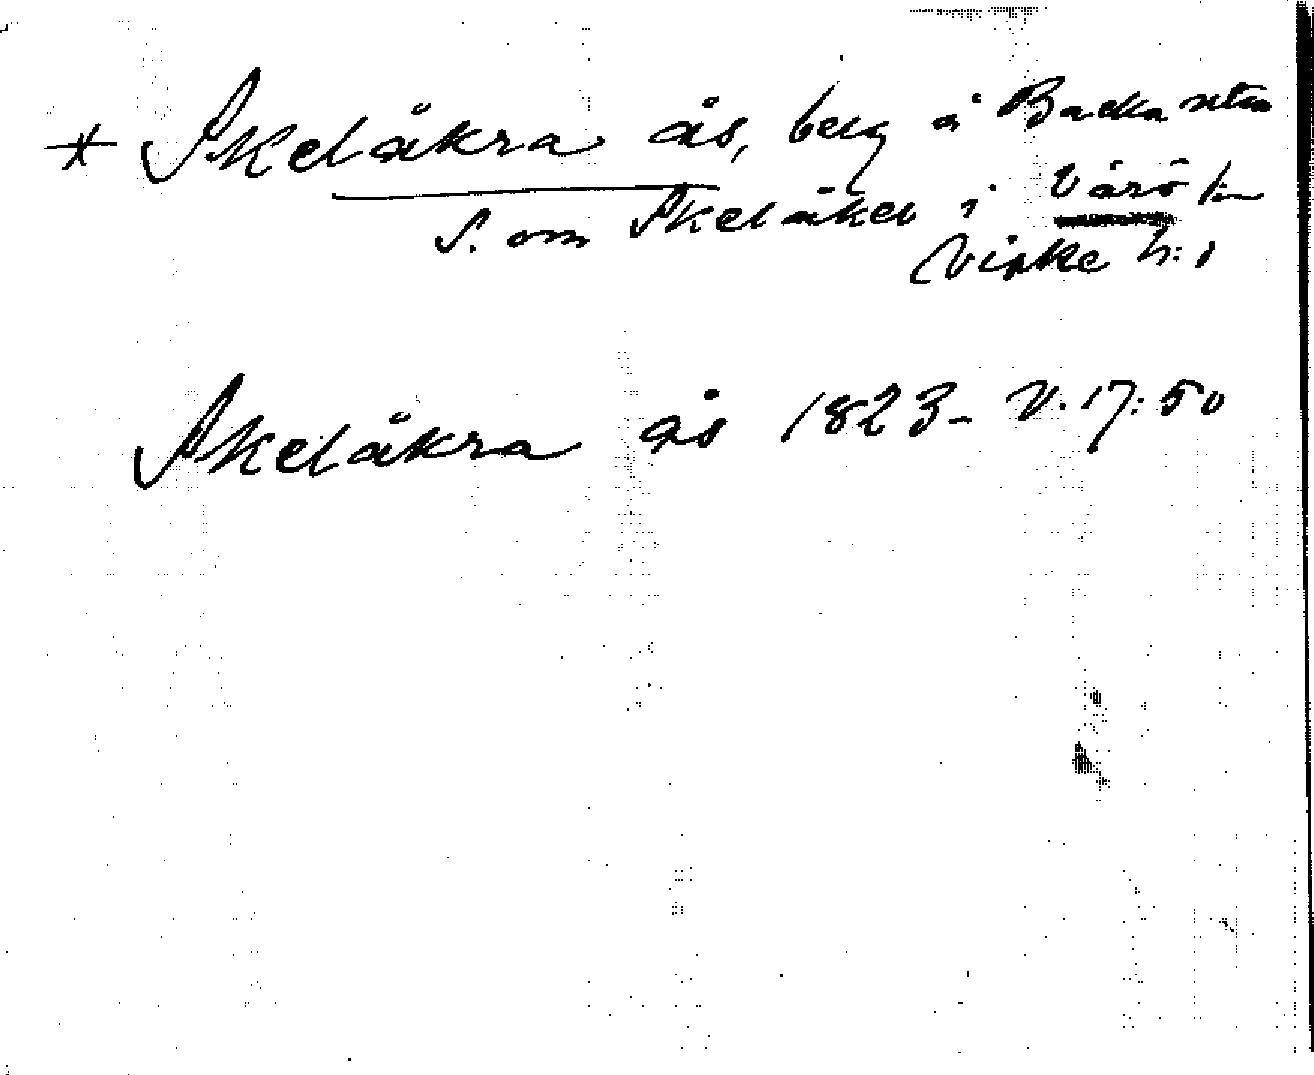 * Skelåkra ås, berg å Backa
S. om Skelåker i Värö sn
Viske h:d
Skelåkra ås 1823 - V. 17: 50